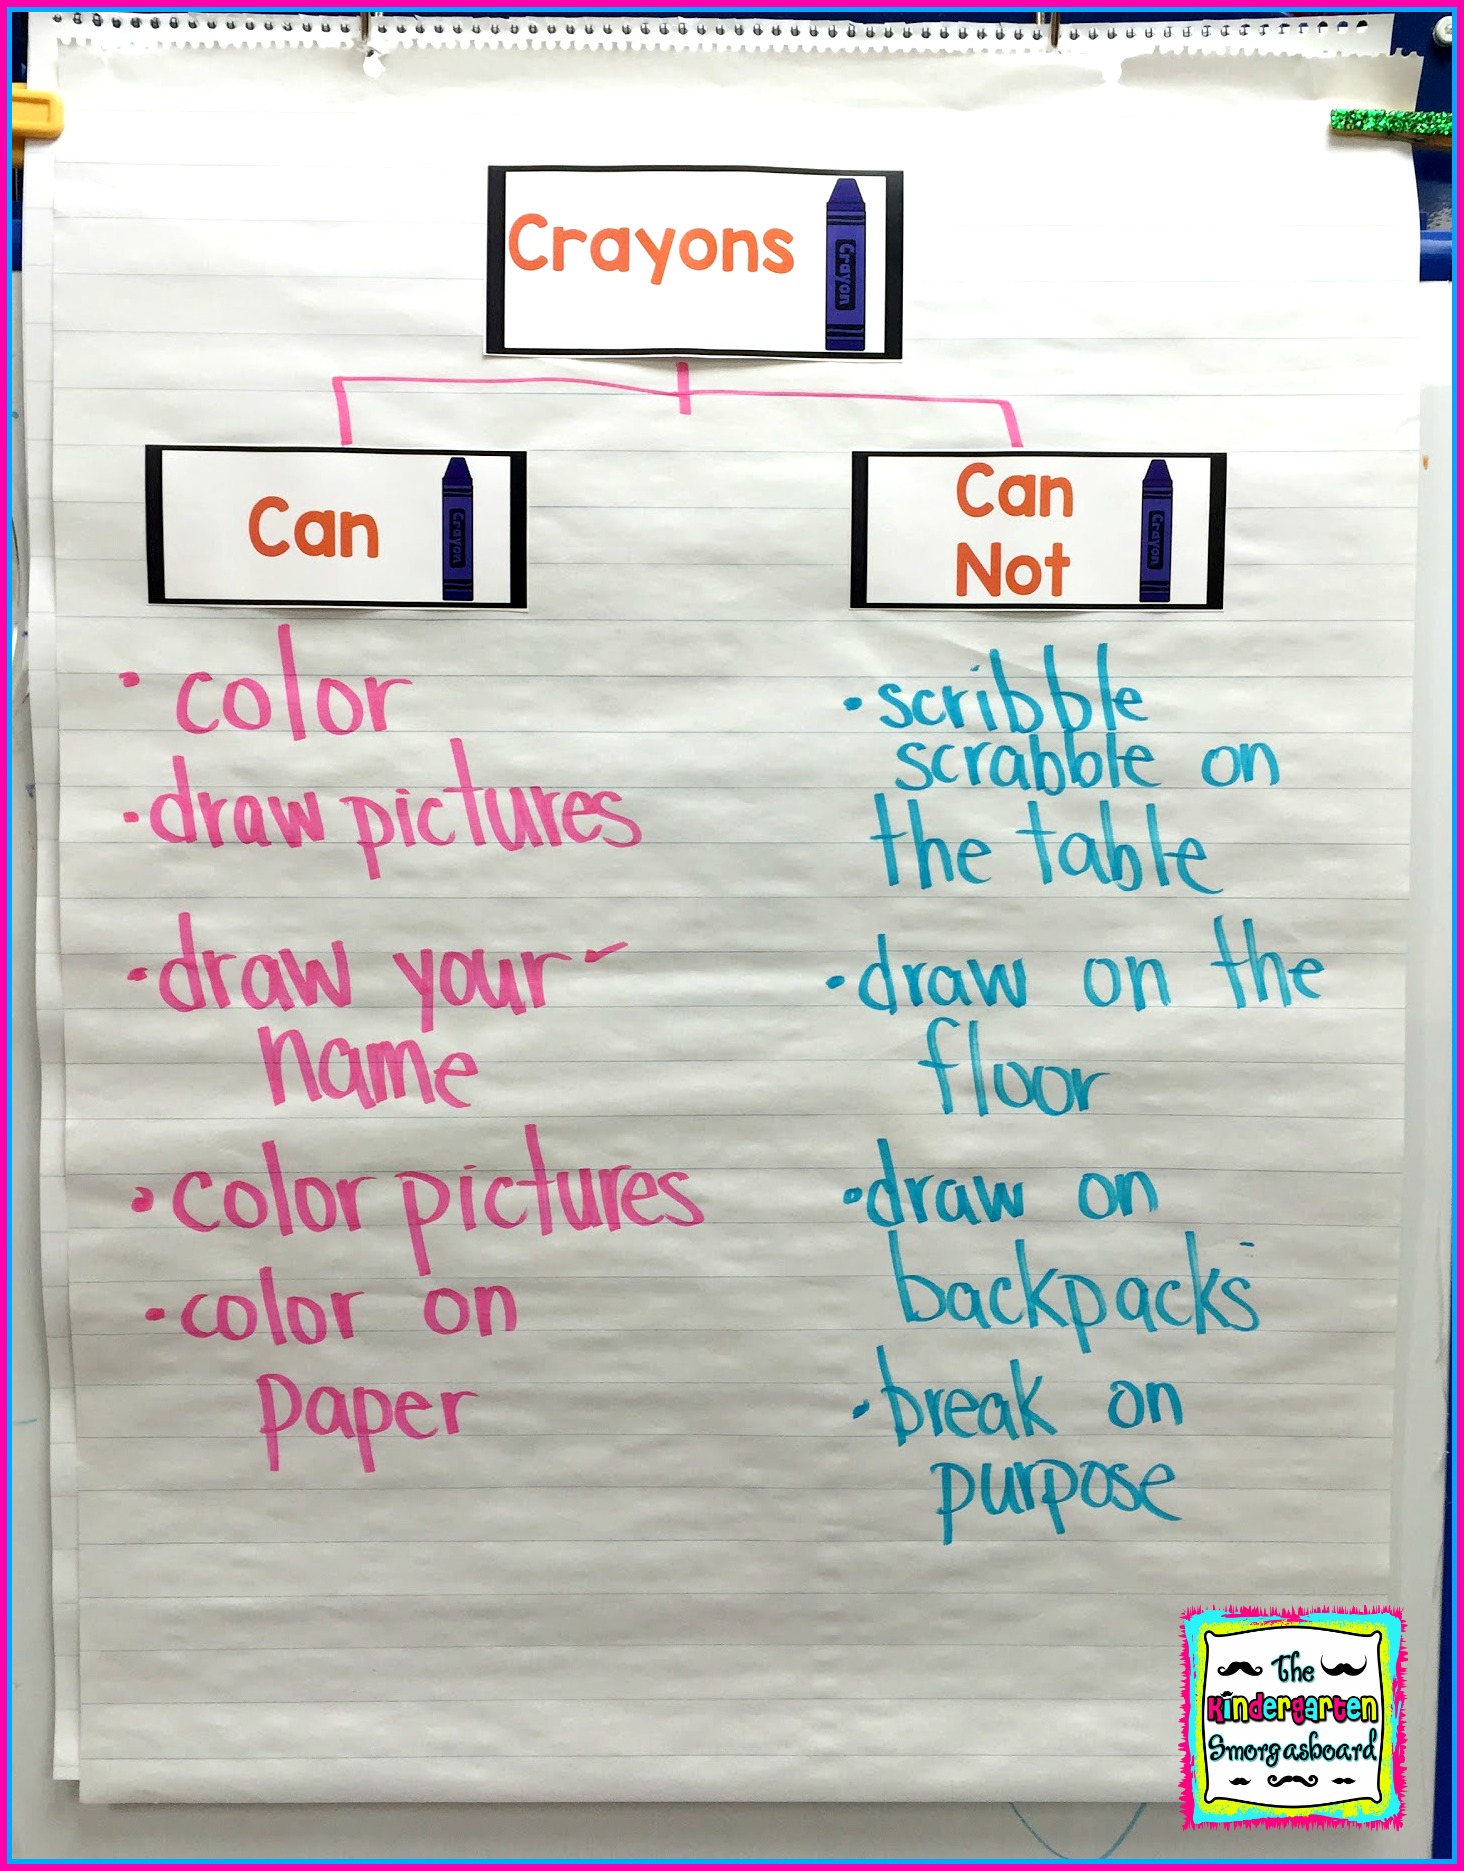 Crayons
Crayon
Can
Crayon
Can
Not
Crayon
• color
• draw pictures
• draw your
name
• color pictures
• color on
paper
• scribble
scrabble on
the table
• draw on the
floor
• draw on
backpacks
• break on
purpose
The
Kindergarten
Smorgasboard